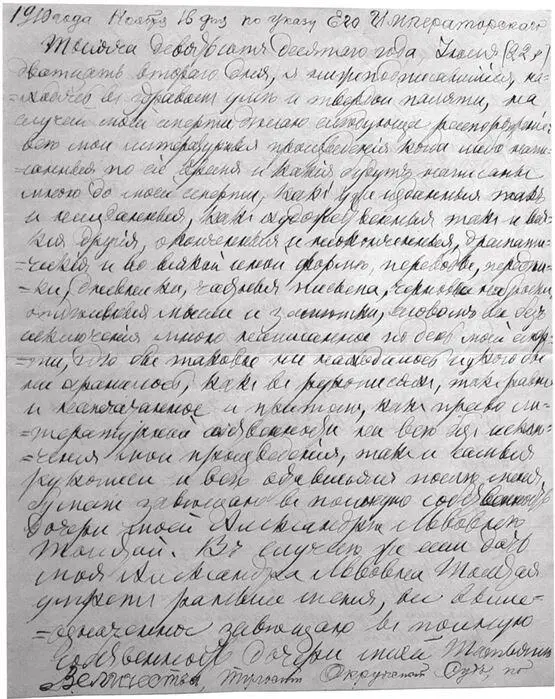 1910 года Ноября 16 дня по указу Его Императорскаго
Тысяча девятьсотъ десятаго года, Іюля (22 д)
двадцать второго дня, я нижеподписавшійся, на-
=ходясь въ здравомъ умѣ и твердой памяти, на
случай моей смерти дѣлаю слѣдующее распоряженіе:
всѣ мои литературныя произведенія, когда либо напи-
санныя по сіе время и какія будутъ написаны
мною до моей смерти, какъ уже изданныя, такъ
и неизданныя, какъ художественныя, такъ и вся-
кія другія, оконченныя и неоконченныя, драмати-
=ческія и во всякой иной формѣ, переводы, передѣл-
ки, дневники, частныя письма, черновые наброски,
отдѣльныя мысли и замѣтки, словомъ все безъ
исключенія мною написанное по день моей смер-
=ти, гдѣ бы таковое ни находилось и у кого бы
ни хранилось, какъ въ рукописяхъ, такъ равно
и напечатанное и притомъ, какъ право ли-
=тературной собственности на всѣ безъ исклю-
=ченія мои произведенія, такъ и самыя
рукописи и всѣ оставшіяся послѣ меня
бумаги завѣщаю въ полную собственность
дочери моей Александрѣ Львовнѣ
Толстой. Въ случаѣ же если дочь
моя Александра Львовна Толстая
умретъ раньше меня, все выше-
=означенное завѣщаю въ полную
собственность дочери моей Татьянѣ
Величества, Тульскій Окружной Судъ, по